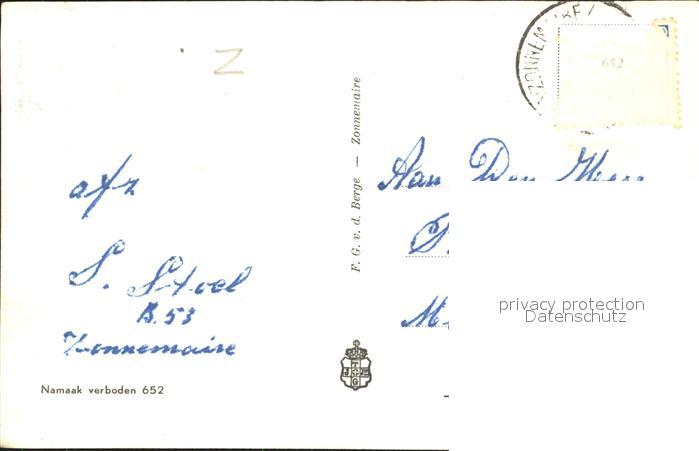 Z
afz
S. Stoel
B. 53
Zonnemaire
Namaak verboden 652
F. G. v. d. Berge — Zonnemaire
ZONNEMAIRE
652
Aan Den Heer
privacy protection
Datenschutz